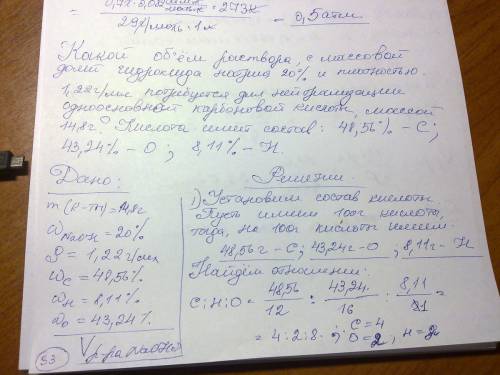 29г/моль · 1л = 0,5 атм.
Какой объём раствора, с массовой
долей гидроксида натрия 20% и плотностью
1,22г/мл потребуется для нейтрализации
одноосновной карбоновой кислоты, массой
14,8г? Кислота имеет состав: 48,56% - С;
43,24% - О; 8,11% - Н.
Дано:
m (к-ты)=14,8г
ω NaOH = 20%
ρ = 1,22г/мл
ωC = 48,56%
ωH = 8,11%
ωO = 43,24%.
V р-ра NaOH
33
Решение
1) Установим состав кислоты.
Пусть имеем 100г кислоты,
тогда, на 100г кислоты имеем:
48,56г - С; 43,24г - О; 8,11г - Н
Найдём отношение:
С:Н:О = 48,56/12 : 43,24/16 : 8,11/1 =
= 4:2:8 - ; С=4 О=2, Н=2